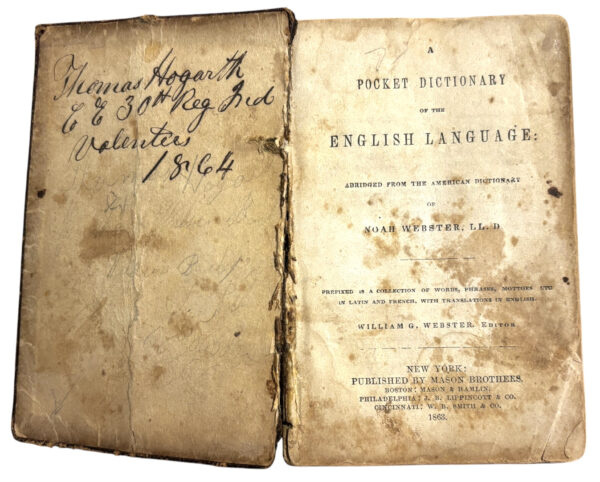 Thomas Hogarth
C E 30th Reg Ind
Valenters
1864
A
POCKET DICTIONARY
OF THE
ENGLISH LANGUAGE:
ABRIDGED FROM THE AMERICAN DICTIONARY
OF
NOAH WEBSTER, LL. D
PREFIXED IS A COLLECTION OF WORDS, PHRASES, MOTTOES ETC
IN LATIN AND FRENCH, WITH TRANSLATIONS IN ENGLISH
WILLIAM G. WEBSTER, EDITOR
NEW YORK:
PUBLISHED BY MASON BROTHERS,
BOSTON: MASON & HAMLIN;
PHILADELPHIA: J. B. LIPPINCOTT & CO.
CINCINNATI: W. B. SMITH & CO.
1863.